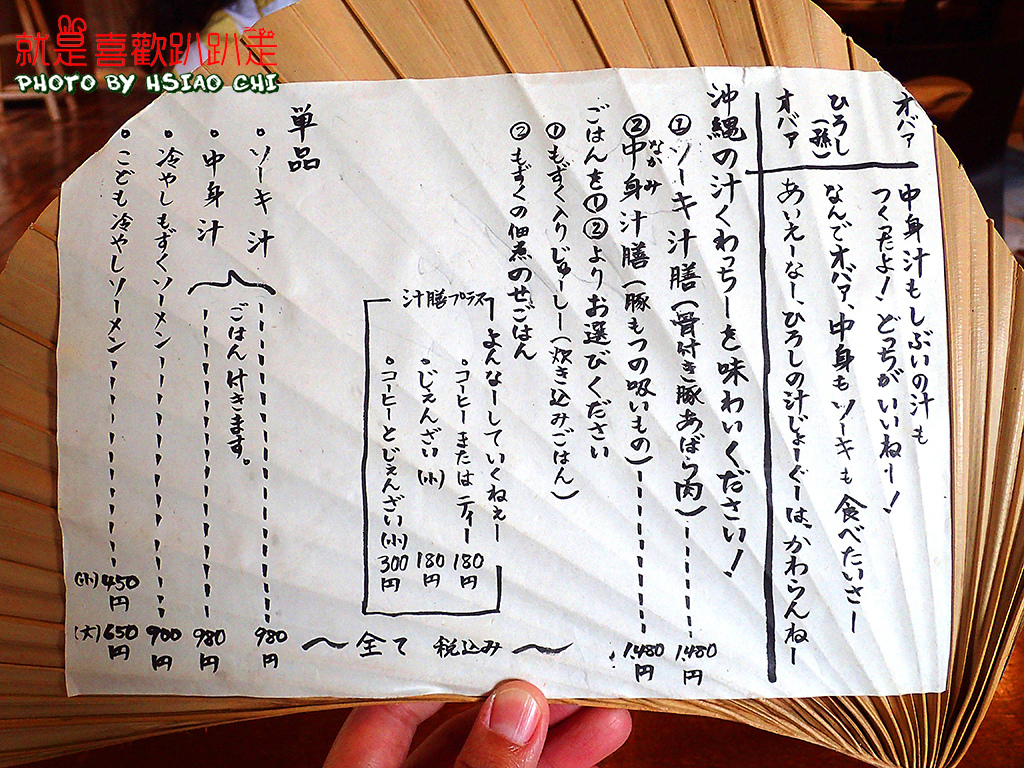 就是喜歡趴趴走
PHOTO BY HSIAO CHI
オバァ
中身汁もしぶいの汁も
つくったよ！どっちがいいねー！
ひろし
(孫)
なんでオバァ、中身もソーキも食べたいさー
オバァ
あいえーなー、ひろしの汁じょーぐーは、かわらんねー
沖縄の汁くわっちーを味わいください！
①ソーキ汁膳(骨付き豚あばら肉)
1,480円
②中身汁膳(豚もつの吸いもの)
なかみ
1,480円
ごはんを①②よりお選びください
①もずく入りじゅーしー(炊き込みごはん)
②もずくの佃煮のせごはん
汁膳プラスー
よんなーしていくねぇー
・コーヒーまたはティー 180円
・じぇんざい(小) 180円
・コーヒーとじぇんざい(小) 300円
〜全て 税込み〜
単品
・ソーキ汁 980円
・中身汁 980円
ごはん付きます。
・冷やしもずくソーメン 900円
・こども冷やしソーメン (小)450円
(大)650円